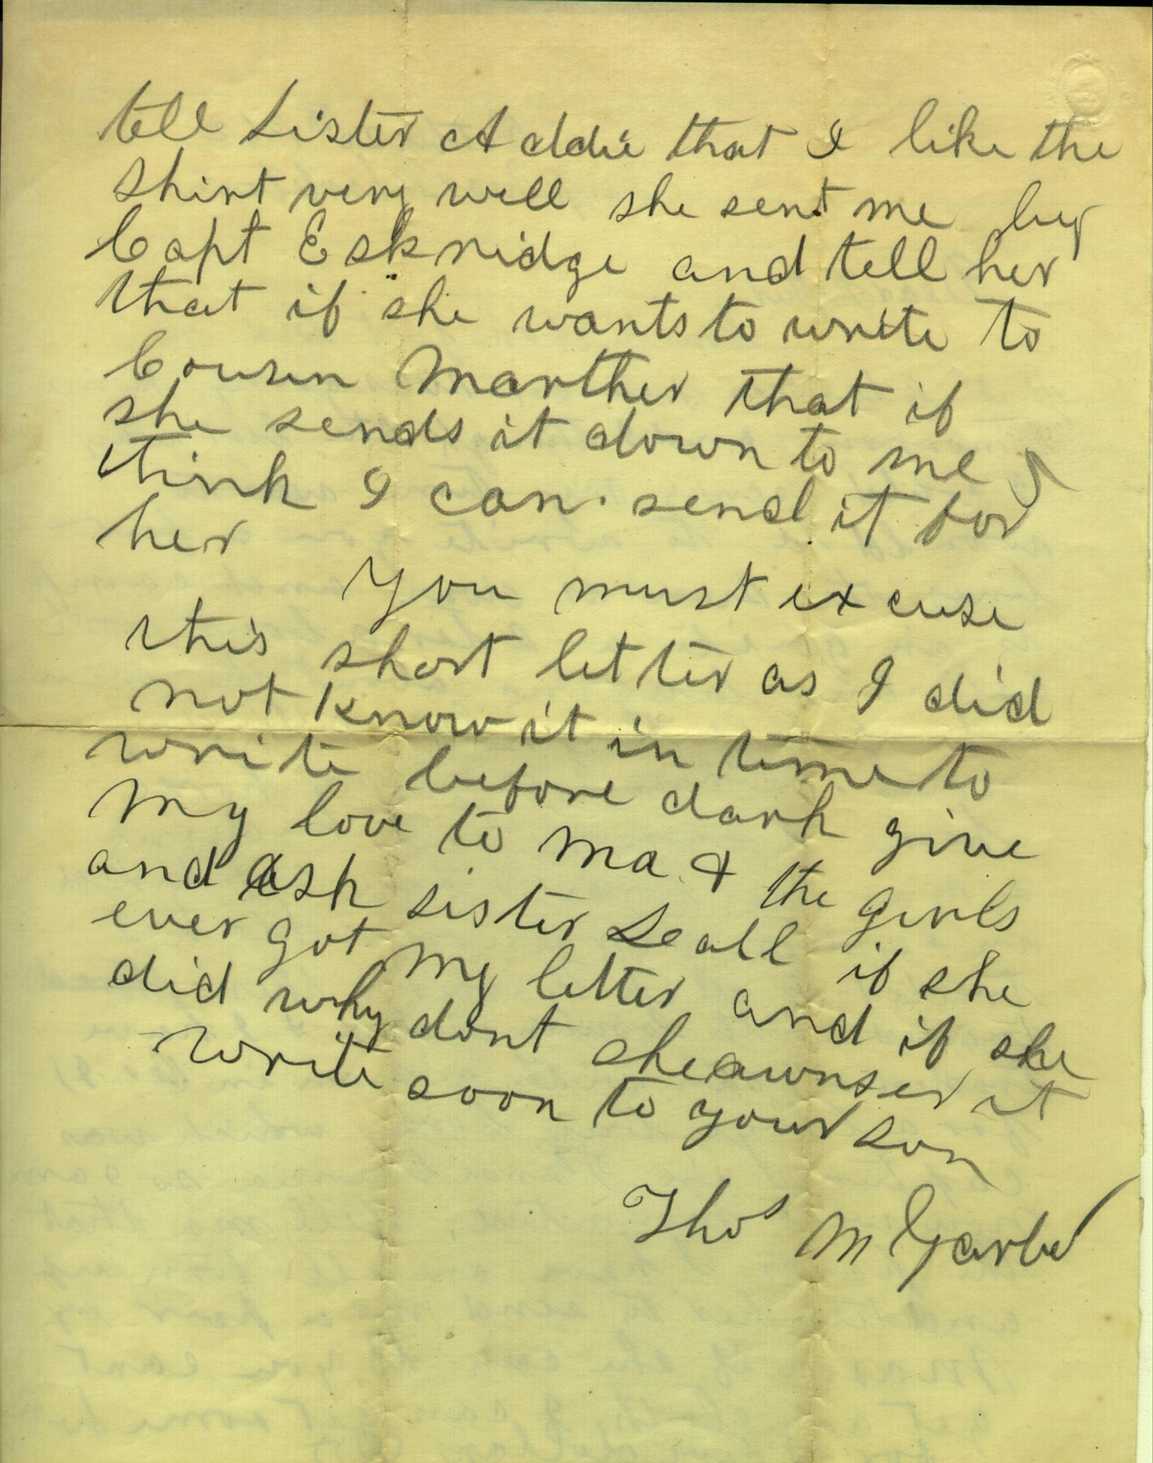 tell Sister Addie that I like the
shirt very well she sent me by
Capt Eskridge and tell her
that if she wants to write to
Cousin Marther that if
she sends it down to me I
think I can send it for
her you must excuse
this short letter as I did
not know it in time to
write before dark give
my love to ma & the girls
and ask sister Seall if she
ever got my letter and if she
did why dont she awnser it
write soon to your son
Thos M Garber